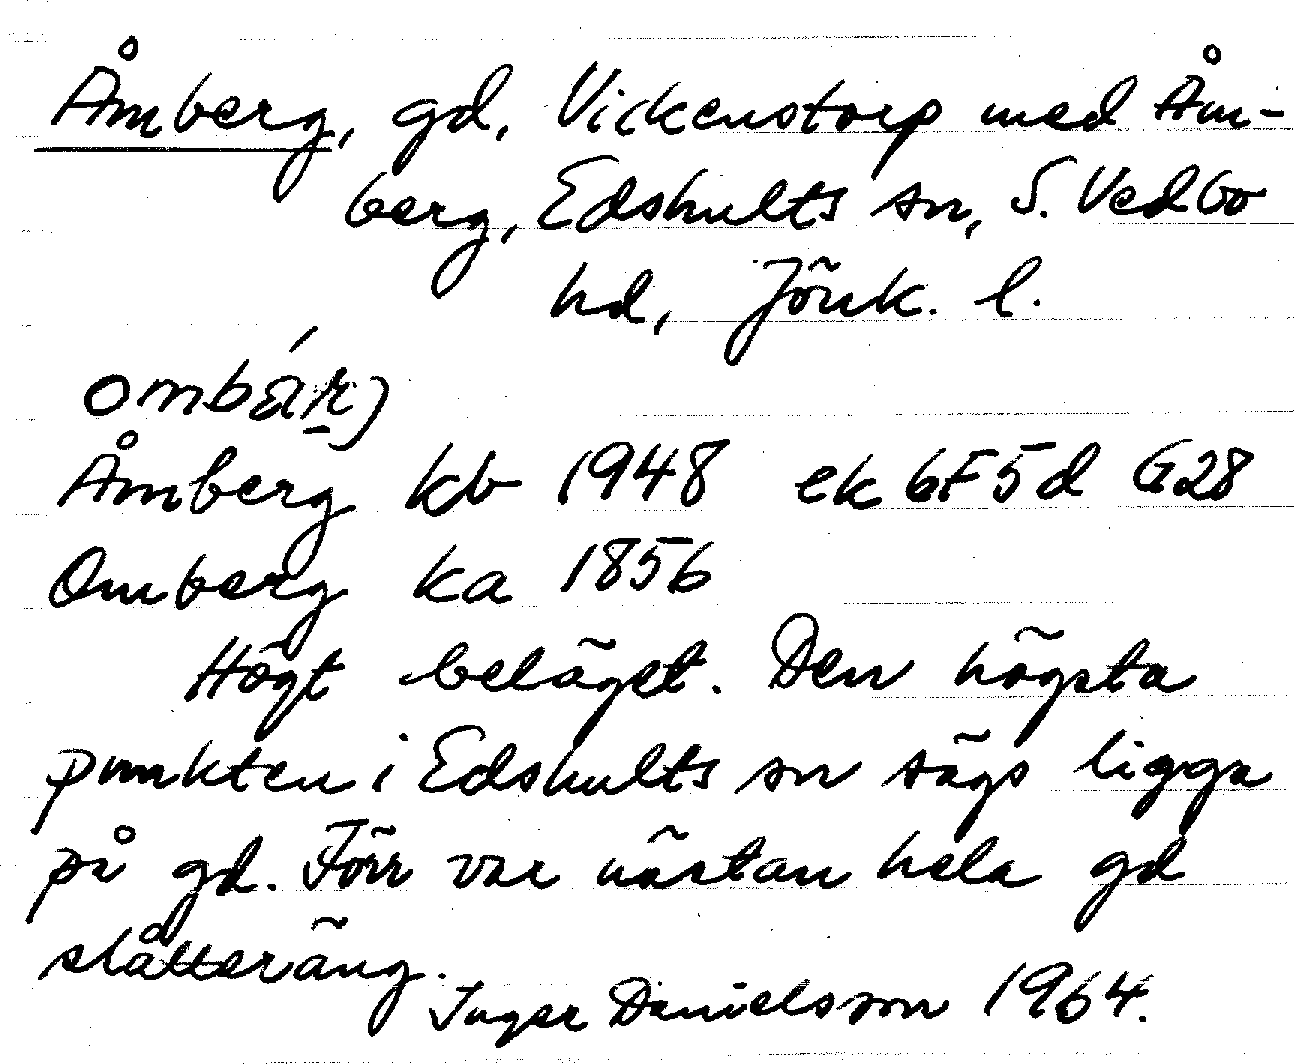 Åmberg, gd, Vickenstorp med Åm-
berg, Edshults sn, S. Vedbo
hd, Jönk. l.
Åmberg kb 1948 ek 6F5d G28
Omberg ka 1856
Högt beläget. Den högsta
punkten i Edshults sn sägs ligga
på gd. Förr var nästan hela gd
slåtteräng.
Inger Danielsson 1964.